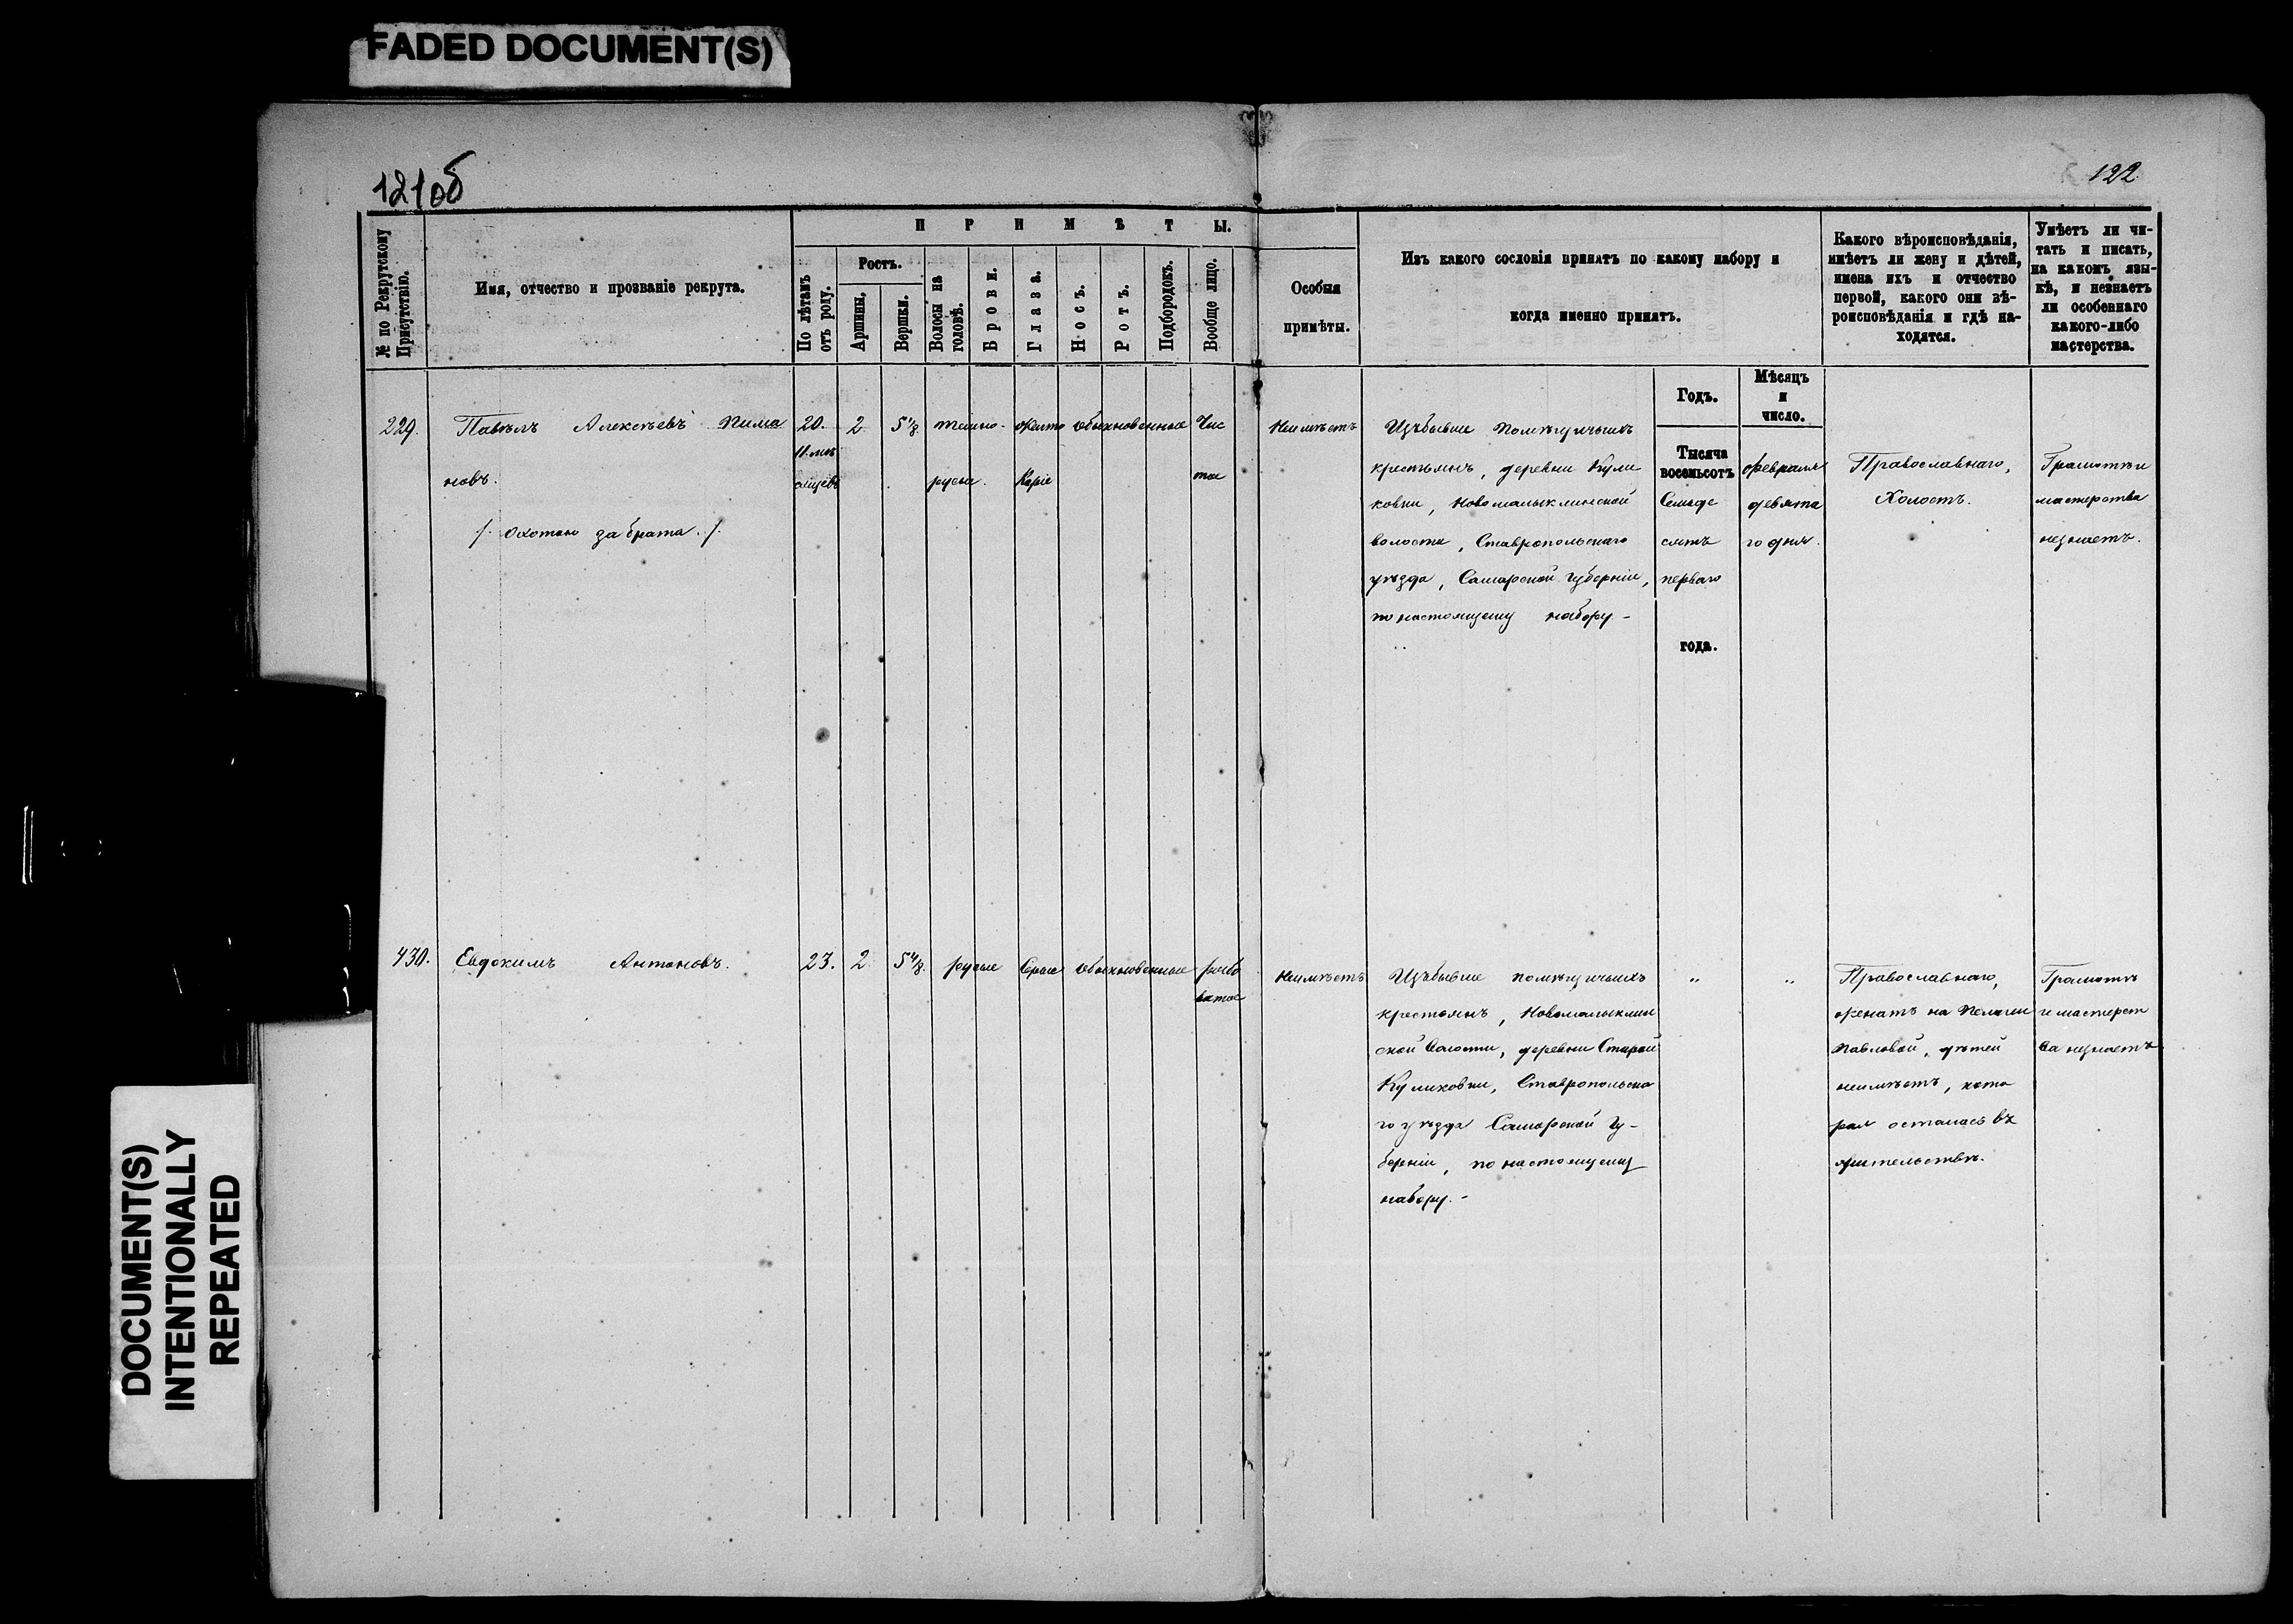 FADED DOCUMENT(S)
121об
122
П Р И М Ѣ Т Ы.
№ по Рекрутскому Присутствію.
Имя, отчество и прозваніе рекрута.
По лѣтамъ отъ роду.
Ростъ.
Аршины.
Вершки.
Волосы на головѣ.
Брови.
Глаза.
Носъ.
Ротъ.
Подбородокъ.
Вообще лицо.
Особыя
примѣты.
Изъ какого сословія принятъ по какому набору и
когда именно принятъ.
Какого вѣроисповѣданія,
имѣетъ ли жену и дѣтей,
имена ихъ и отчество
первой, какого они вѣ-
роисповѣданія и гдѣ на-
ходятся.
Умѣетъ ли чи-
тать и писать,
на какомъ язы-
кѣ, и незнаетъ
ли особеннаго
какого-либо
мастерства.
Годъ.
Мѣсяцъ
и
число.
229.
Павелъ Алексѣевъ Пима
новъ.
/. Охотою за брата. /.
20.
11. мѣ
сяцевъ
2
5 1/8
темно-
русые.
желто
Каріе
обыкновенные
Чис
тое
Неимѣетъ
Изъ бывше помѣщичьихъ
крестьянъ, деревни Кули
ковки, Новомалыклинской
волости, Ставропольскаго
уѣзда, Самарской Губерніи,
по настоящему набору -
Тысяча
восемьсотъ
Семьде
сятъ
перваго
года.
февраля
девята
го дня.
Православнаго,
Холостъ.
Грамотѣ и
мастерства
незнаетъ.
430.
Евдокимъ Антоновъ.
23.
2
5 4/8.
русые
Серые
обыкновенные
рябо
ватое
Неимѣетъ
Изъ бывше помѣщичьихъ
крестьянъ, Новомалыклин
ской Волости, деревни Старой
Куликовки, Ставропольска
го уѣзда Самарской Гу-
берніи, по настоящему
набору. -
"
"
Православнаго,
женатъ на Пелагеи
Павловой, дѣтей
неимѣетъ, кото
рая осталась въ
жительствѣ.
Грамотѣ
и мастерст
ва незнаетъ
DOCUMENT(S)
INTENTIONALLY
REPEATED